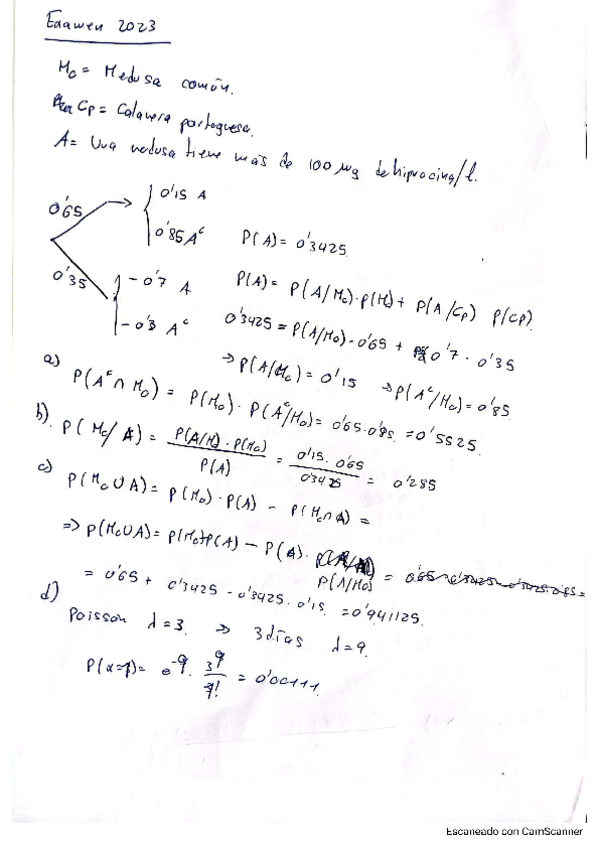 Examen 2023
Mc = Medusa común.
Cp = Calavera portuguesa.
A = Una medusa tiene más de 100 µg de hiprocina/l.
0'65
0'15 A
0'85 Aᶜ
P(A) = 0'3425
0'35
- 0'7 A
- 0'3 Aᶜ
P(A) = P(A/Mc)·P(Mc) + P(A/Cp) P(Cp)
0'3425 = P(A/Mc)·0'65 + 0'7 · 0'35
⇒ P(A/Mc) = 0'15 ⇒ P(Aᶜ/Mc) = 0'85
a) P(Aᶜ ∩ Mc) = P(Mc) · P(Aᶜ/Mc) = 0'65·0'85 = 0'5525
b) P(Mc/A) = P(A/M)·P(Mc) / P(A) = 0'15 · 0'65 / 0'3425 = 0'285
c) P(Mc ∪ A) = P(Mc) · P(A) - P(Mc ∩ A) =
⇒ P(Mc ∪ A) = P(Mc)+P(A) - P(A) · P(A/Mc) =
= 0'65 + 0'3425 - 0'3425 · 0'15 = 0'941125
d) Poisson λ=3 ⇒ 3 días λ=9
= 0'00111
Escaneado con CamScanner